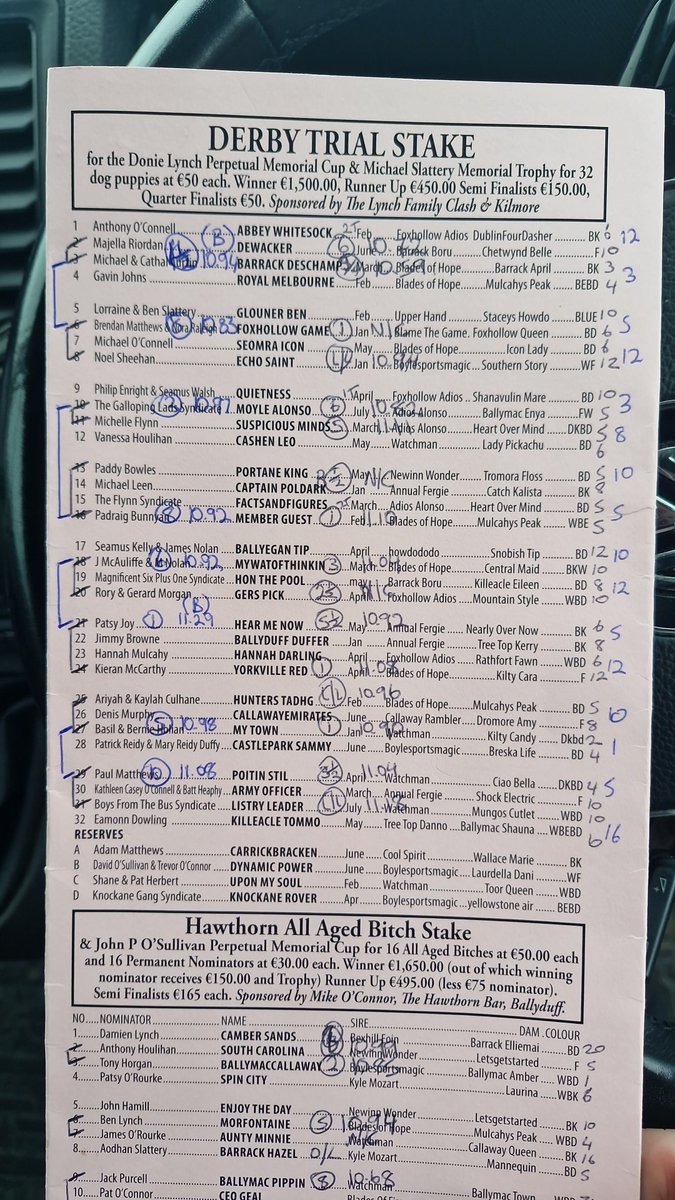 DERBY TRIAL STAKE
for the Donie Lynch Perpetual Memorial Cup & Michael Slattery Memorial Trophy for 32
dog puppies at €50 each. Winner €1,500.00, Runner Up €450.00 Semi Finalists €150.00,
Quarter Finalists €50. Sponsored by The Lynch Family Clash & Kilmore
1 Anthony O'Connell (B) ABBEY WHITESOCK Feb Foxhollow Adios DublinFourDasher BK 6 12
2 Majella Riordan DEWACKER 6 June Barrack Boru Chetwynd Belle FJ 10
3 Michael & 10.94 BARRACK DESCHAMP March Blades of Hope Barrack April BK 3
4 Gavin Johns ROYAL MELBOURNE Feb Blades of Hope Mulcahys Peak BEBD 4 3
5 Lorraine & Ben Slattery GLOUNER BEN Feb Upper Hand Staceys Howdo BLUE 10
6 Brendan Matthews & 10.83 FOXHOLLOW GAME 1 Jan Blame The Game. Foxhollow Queen BD 6 5
7 Michael O'Connell SEOMRA ICON May Blades of Hope Icon Lady BD 6
8 Noel Sheehan ECHO SAINT Jan Boylesportsmagic Southern Story WF 12 12
9 Philip Enright & Seamus Walsh QUIETNESS April Foxhollow Adios Shanavulin Mare BD 10
10 The Galloping Lads Syndicate 10.97 MOYLE ALONSO 6 July Adios Alonso Ballymac Enya FW 5 3
11 Michelle Flynn SUSPICIOUS MINDS 5 March Adios Alonso Heart Over Mind DKBD 5 8
12 Vanessa Houlihan CASHEN LEO May Watchman Lady Pickachu BD 6
13 Paddy Bowles PORTANE KING May N/C Newinn Wonder Tromora Floss BD 5 10
14 Michael Leen CAPTAIN POLDARK Jan Annual Fergie Catch Kalista BK 8
15 The Flynn Syndicate FACTSANDFIGURES March Adios Alonso Heart Over Mind BD 5
16 Padraig Bunyan 8 10.92 MEMBER GUEST 1 Feb 11.10 Blades of Hope Mulcahys Peak WBE 5 5
17 Seamus Kelly & James Nolan BALLYEGAN TIP April howdododo Snobish Tip BD 12 10
18 J McAuliffe & 10.92 MYWATOFTHINKIN 3 March Blades of Hope Central Maid BKW 10
19 Magnificent Six Plus One Syndicate HON THE POOL may Barrack Boru Killeacle Eileen BD 8
20 Rory & Gerard Morgan GERS PICK April N/C Foxhollow Adios Mountain Style WBD 10 12
21 Patsy Joy 1 11.29 (B) HEAR ME NOW May 10.92 Annual Fergie Nearly Over Now BK 6 5
22 Jimmy Browne BALLYDUFF DUFFER Jan Annual Fergie Tree Top Kerry BK 8
23 Hannah Mulcahy HANNAH DARLING April Foxhollow Adios Rathfort Fawn WBD 6
24 Kieran McCarthy YORKVILLE RED 1 April Blades of Hope Kilty Cara F 12 12
25 Ariyah & Kaylah Culhane HUNTERS TADHG Feb 10.96 Blades of Hope Mulcahys Peak BD 5 10
26 Denis Murphy CALLAWAYEMIRATES June Callaway Rambler Dromore Amy F 8
27 Basil & Bernie 5 10.98 MY TOWN 1 Jan Watchman Kilty Candy Dkbd 2
28 Patrick Reidy & Mary Reidy Duffy CASTLEPARK SAMMY June Boylesportsmagic Breska Life BD 4 1
29 Paul Matthews 11.08 POITIN STIL April 11.04 Watchman Ciao Bella DKBD 4 5
30 Kathleen Casey O'Connell & Batt Heaphy ARMY OFFICER March Annual Fergie Shock Electric F 10
31 Boys From The Bus Syndicate LISTRY LEADER July Watchman Mungos Cutlet WBD 10
32 Eamonn Dowling KILLEACLE TOMMO May Tree Top Danno Ballymac Shauna WBEBD 6 16
RESERVES
A Adam Matthews CARRICKBRACKEN June Cool Spirit Wallace Marie BK
B David O'Sullivan & Trevor O'Connor DYNAMIC POWER June Boylesportsmagic Laurdella Dani WF
C Shane & Pat Herbert UPON MY SOUL Feb Watchman Toor Queen WBD
D Knockane Gang Syndicate KNOCKANE ROVER Apr Boylesportsmagic yellowstone air BEBD
Hawthorn All Aged Bitch Stake
& John P O'Sullivan Perpetual Memorial Cup for 16 All Aged Bitches at €50.00 each
and 16 Permanent Nominators at €30.00 each. Winner €1,650.00 (out of which winning
nominator receives €150.00 and Trophy) Runner Up €495.00 (less €75 nominator).
Semi Finalists €165 each. Sponsored by Mike O'Connor, The Hawthorn Bar, Ballyduff.
NO NOMINATOR NAME SIRE DAM COLOUR
1 Damien Lynch CAMBER SANDS Bexhill Eoin Barrack Elliemai BD 20
2 Anthony Houlihan SOUTH CAROLINA Newinn Wonder Letsgetstarted F 5
3 Tony Horgan BALLYMACCALLAWAY 2 Boylesportsmagic Ballymac Amber WBD 1
4 Patsy O'Rourke SPIN CITY Kyle Mozart Laurina WBK 6
5 John Hamill ENJOY THE DAY Newinn Wonder Letsgetstarted BK 10
6 Ben Lynch MORFONTAINE 5 10.94 Blades of Hope Mulcahys Peak WBD 4
7 James O'Rourke AUNTY MINNIE Watchman Callaway Queen BK 16
8 Aodhan Slattery BARRACK HAZEL O/L Kyle Mozart Mannequin BD 5
9 Jack Purcell BALLYMAC PIPPIN 8 10.68 Watchman Ballymac Town
10 Pat O'Connor CEO GEAL